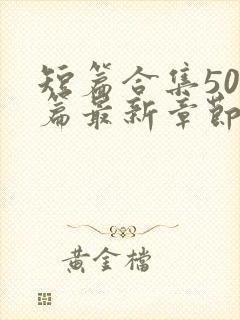 短篇合集50
篇最新章節
黃金檔